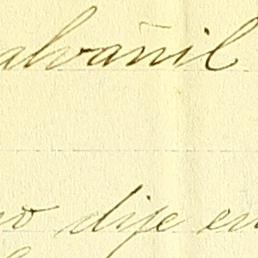 alvañil
no dije en